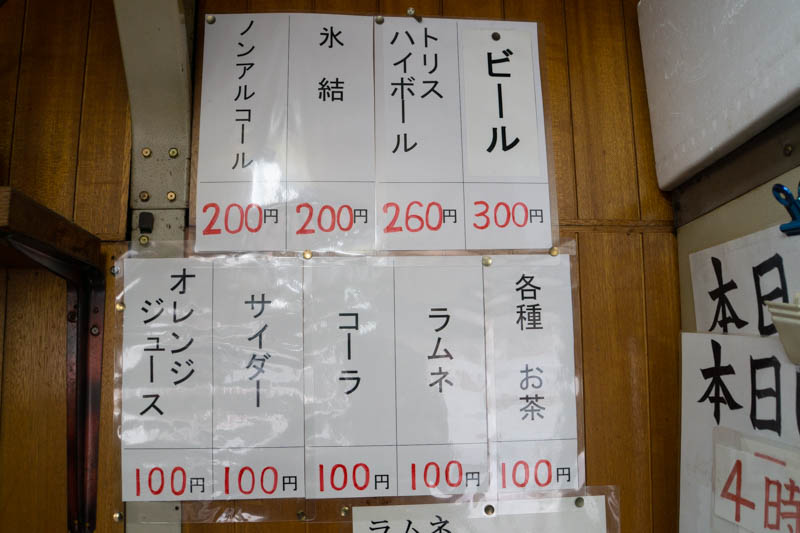 ビール
300円
トリス
ハイボール
260円
氷結
200円
ノンアルコール
200円
各種 お茶
100円
ラムネ
100円
コーラ
100円
サイダー
100円
オレンジ
ジュース
100円
ラムネ
本日
本日
4時